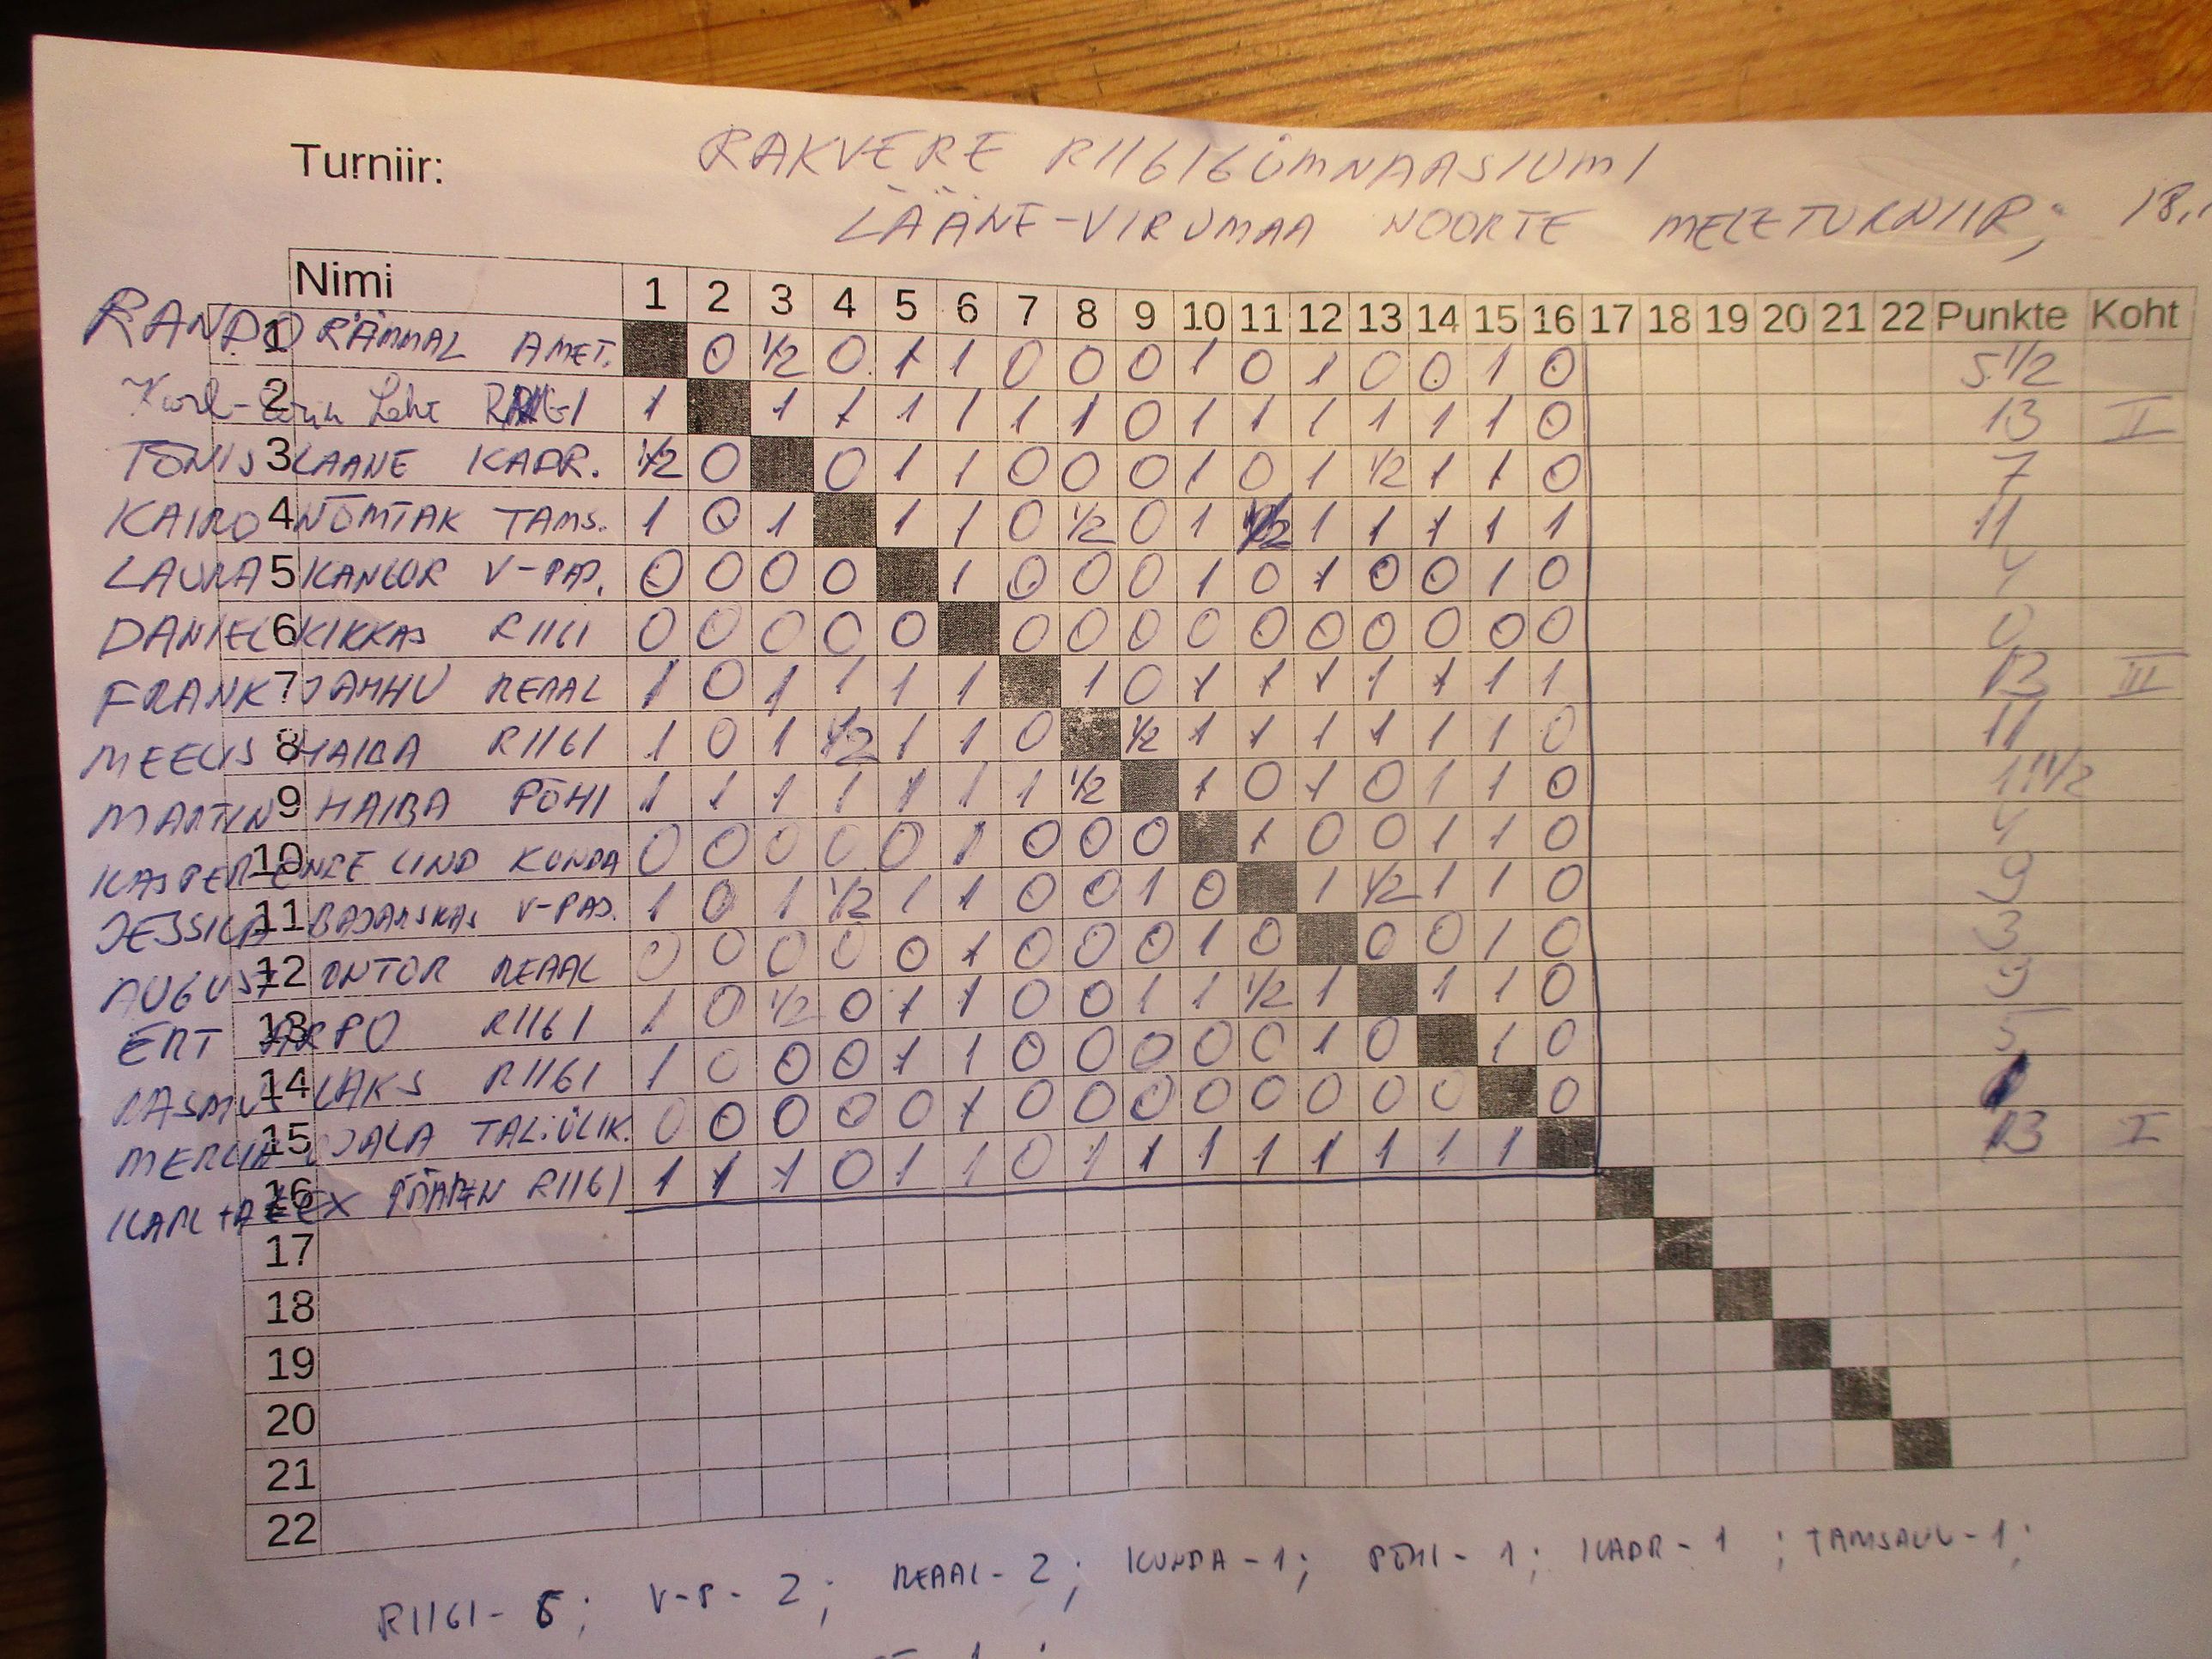 Turniir: RAKVERE RIIGIGÜMNAASIUMI
LÄÄNE-VIRUMAA NOORTE MELETURNIIR; 18.
Nimi 1 2 3 4 5 6 7 8 9 10 11 12 13 14 15 16 17 18 19 20 21 22 Punkte Koht
RANDO 1 RÄMMAL AMET. 0 1/2 0 1 1 0 0 0 1 0 1 0 0 1 0 5 1/2
2 Lehe 1 1 1 1 1 1 1 0 1 1 1 1 1 1 0 13 II
TÕNIS 3 LAANE KADR. 1/2 0 0 1 1 0 0 0 1 0 1 1/2 1 1 0 7
KAIRO 4 NÕMTAK TAMS. 1 0 1 1 1 0 1/2 0 1 1/2 1 1 1 1 1 11
LAURA 5 KANGOR V-PAJ. 0 0 0 0 1 0 0 0 1 0 1 0 0 1 0 4
DANIEL 6 KIKKAS RIIGI 0 0 0 0 0 0 0 0 0 0 0 0 0 0 0 0
FRANK 7 JAHHU REAAL 1 0 1 1 1 1 1 0 1 1 1 1 1 1 1 13 III
MEELIS 8 HAIBA RIIGI 1 0 1 1/2 1 1 0 1/2 1 1 1 1 1 1 0 11
MARTIN 9 HAIBA PÕHI 1 1 1 1 1 1 1 1/2 1 0 1 0 1 1 0 11 1/2
KASPER 10 LIND KUNDA 0 0 0 0 0 1 0 0 0 1 0 0 1 1 0 4
JESSICA 11 BAJARSKAS V-PAJ. 1 0 1 1/2 1 1 0 0 1 0 1 1/2 1 1 0 9
AUGUST 12 ONTOR REAAL 0 0 0 0 0 1 0 0 0 1 0 0 0 1 0 3
ERT 13 ARPO RIIGI 1 0 1/2 0 1 1 0 0 1 1 1/2 1 1 1 0 9
RASMUS 14 LAKS RIIGI 1 0 0 0 1 1 0 0 0 0 0 1 0 1 0 5
15 OJALA TAL.ÜLIK. 0 0 0 0 0 1 0 0 0 0 0 0 0 0 0 1
16 RIIGI 1 1 1 0 1 1 0 1 1 1 1 1 1 1 1 13 I
17
18
19
20
21
22
RIIGI - 6; V-P - 2; REAAL - 2; KUNDA - 1; PÕHI - 1; KADR - 1; TAMSALU - 1;